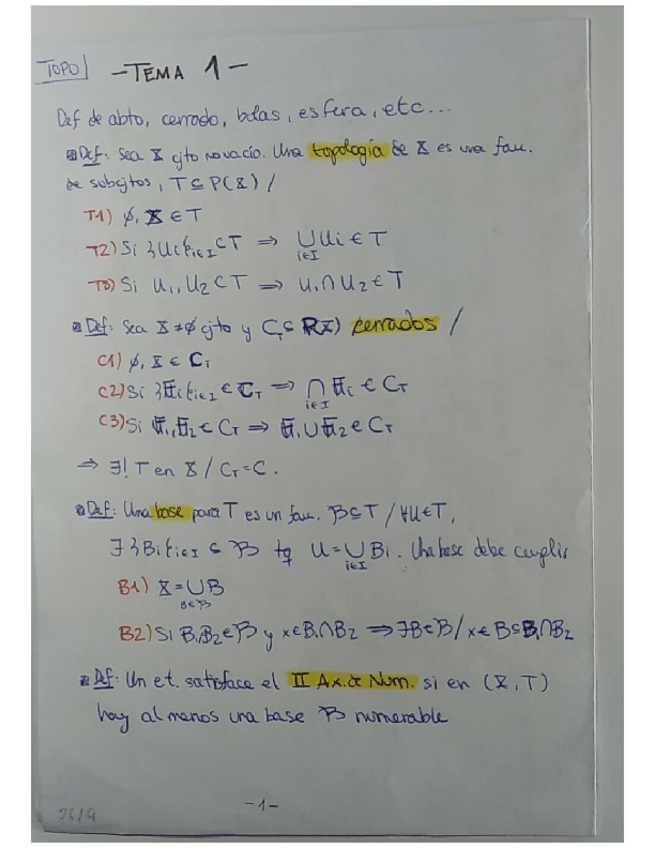 TOPO
-TEMA 1-
Def de abto, cerrado, bolas, esfera, etc...
Def: Sea X cjto no vacío. Una topología de X es una fam.
de subcjtos, T⊆P(X) /
T1) ∅, X ∈ T
T2) Si {Ui}i∈I ⊂ T ⇒ ⋃i∈I Ui ∈ T
T3) Si U1, U2 ⊂ T ⇒ U1 ∩ U2 ∈ T
Def: Sea X ≠ ∅ cjto y CT ⊆ P(X) cerrados /
C1) ∅, X ∈ CT
C2) Si {Fi}i∈I ∈ CT ⇒ ⋂i∈I Fi ∈ CT
C3) Si F1, F2 ∈ CT ⇒ F1 ∪ F2 ∈ CT
⇒ ∃! T en X / CT = C.
Def: Una base para T es un fam. B⊆T / ∀U∈T,
∃ {Bi}i∈I ⊆ B tq U = ⋃i∈I Bi. Una base debe cumplir
B1) X = ⋃B∈B B
B2) Si B1, B2 ∈ B y x∈B1∩B2 ⇒ ∃B∈B / x∈B⊆B1∩B2
Def: Un et. satisface el II Ax. de Num. si en (X, T)
hay al menos una base B numerable
-1-
26/9